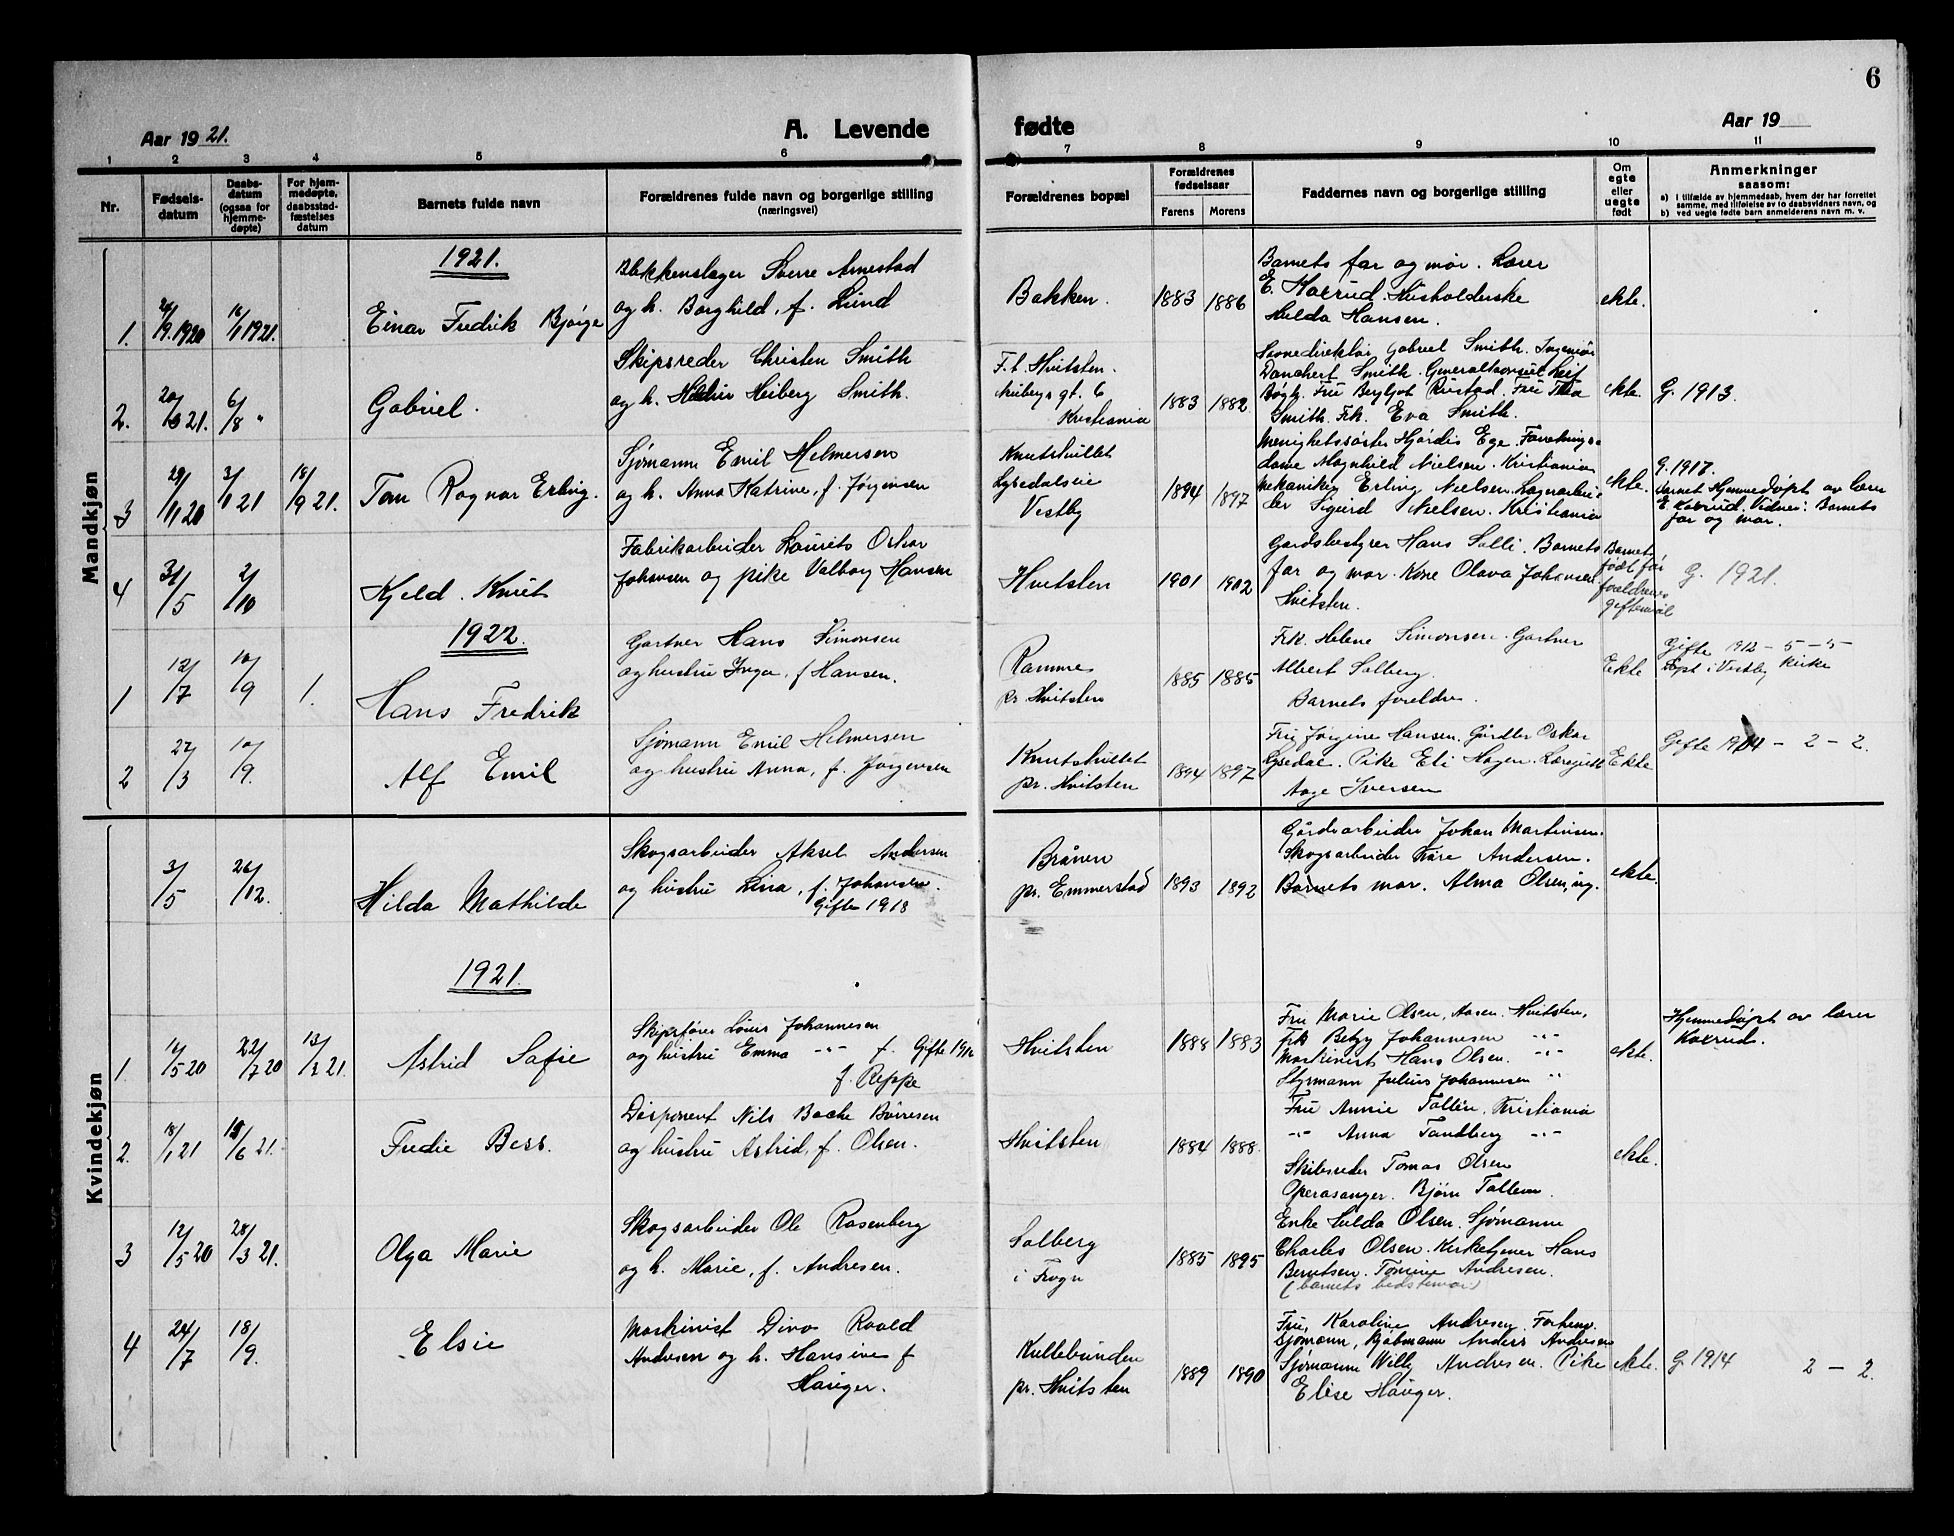 6
Aar 1921.
A. Levende
fødte
Aar 19
1 2 3 4 5 6 7 8 9 10 11
Nr.
Fødsels-
datum
Daabs-
datum
(ogsaa for
hjemme-
døpte)
For hjem-
medøpte,
daabsstad-
fæstelses
datum
Barnets fulde navn
Forældrenes fulde navn og borgerlige stilling
(næringsvei)
Forældrenes bopæl
Forældrenes
fødselsaar
Farens Morens
Faddernes navn og borgerlige stilling
Om
egte
eller
uegte
født
Anmerkninger
saasom:
a) i tilfælde av hjemmedaab, hvem der har forrettet
samme, med tilføielse av to daabsvidners navn, og
b) ved uegte fødte barn anmelderens navn m. v.
Mandkjøn
1921.
1. /9 1920 /1 1921. Einar Fredrik Bjørge
Blikkenslager Sverre Arnestad
og h. Borghild, f. Lund
Bakken. 1883 1886
Barnets far og mor. Lærer
E. Kolrud. Husholderske
Hulda Hansen.
ekte.
2. 20/3 21. 6/8 " Gabriel.
Skipsreder Christen Smith
og h. Heiberg Smith.
F.t. Hvitsten.
gt. 6
Kristiania
1883 1882
Gabriel Smith. Ingeniør
Smith. Generalkonsul Leif
Bøgh. Fru Bergljot Rustad. Fru Thea
Smith. Frk. Eva Smith.
ekte. G. 1913.
3 29/11 20 3/1 21 18/9 21. Tom Ragnar Erling.
Sjømann Emil Helmersen
og h. Anna Katrine, f. Jørgensen
Knutshullet
Lysedalseie
Vestby
1894 1897
Menighetssøster Hjørdis Ege. Forretnings-
dame Magnhild Nielsen. Kristiania
Mekaniker Erling Nielsen. Lagerarbei-
der Sigurd Nielsen. Kristiania
ekte.
G. 1917.
Barnet hjemmedøpt av lærer
E. Kolrud. Vidner: Barnets
far og mor.
4 31/5 2/10 Kjeld Knut
Fabrikarbeider Laurits Oskar
Johansen og pike Valborg Hansen
Hvitsten 1901 1902
Gardsbestyrer Hans Solli. Barnets
far og mor. Kone Olava Johansen.
Hvitsten.
Barnet
født før
foreldrenes
giftemål
G. 1921.
1922.
1 12/7 10/9 1. Hans Fredrik
Gartner Hans Simonsen
og hustru Inga, f. Hansen.
Ramme
pr. Hvitsten
1885 1885
Frk. Helene Simonsen. Gartner
Albert Solberg.
Barnets foreldre.
Ekte
Gifte 1912 – 5 – 5
Døpt i Vestby kirke
2 27/3 10/9. Alf Emil
Sjømann Emil Helmersen
og hustru Anna, f. Jørgensen
Knutshullet
pr. Hvitsten
1894 1897
Fru Jørgine Hansen. Oskar
Lysedal. Pike Eli Hagen.
Aage Iversen
Ekte
Gifte – 2 – 2.
3/5 26/12. Hilda Mathilde
Skogsarbeider Aksel Andersen
og hustru Lina, f. Johansen.
Gifte 1918
Brånen
pr. Emmerstad
1893 1892
Gårdsarbeider Johan Martinsen.
Skogsarbeider Andersen.
Barnets mor. Alma Olsen, ug.
ekte.
Kvindekjøn
1921.
1. 14/5 20 22/7 20 13/3 21. Astrid Sofie
Skipsfører Louis Johannesen
og hustru Emma -"- f. Gifte 1912
f. Reppe
Hvitsten 1888 1883
Fru Marie Olsen, Aasen, Hvitsten,
Frk Betzy Johannesen -"-
Maskinist Hans Olsen. -"-
Styrmann Julius Johannesen "
ekte.
Hjemmedøpt av lærer
Kolrud.
2. 18/1 21 /6 21. Fredie Bess.
Disponent Nils Bache Børresen
og hustru Astrid, f. Olsen.
Hvitsten 1884 1888.
Fru Annie Kristiania
-"- Anna Tandberg -"-
Skibsreder Tomas Olsen
Operasanger. Bjørn
ekte.
3 12/5 20 28/3 21. Olga Marie
Skogsarbeider Ole Rosenberg
og h. Marie, f. Andresen.
Solberg
i Frogn
1885 1895
Enke Hulda Olsen. Sjømann
Charles Olsen. Kirketjener Hans
Berntsen. Tomine Andresen.
(barnets bedstemor)
4 24/7 18/9. Elsie
Maskinist Roald
Andresen og h. Hansine f.
Hauger.
Kullebunden
pr. Hvitsten
1889 1890
Fru, Karoline Andresen.
Sjømann, Anders Andresen
Sjømann Willy Andresen. Pike
Elise Hauger.
ekte. G. 1914 2 – 2.